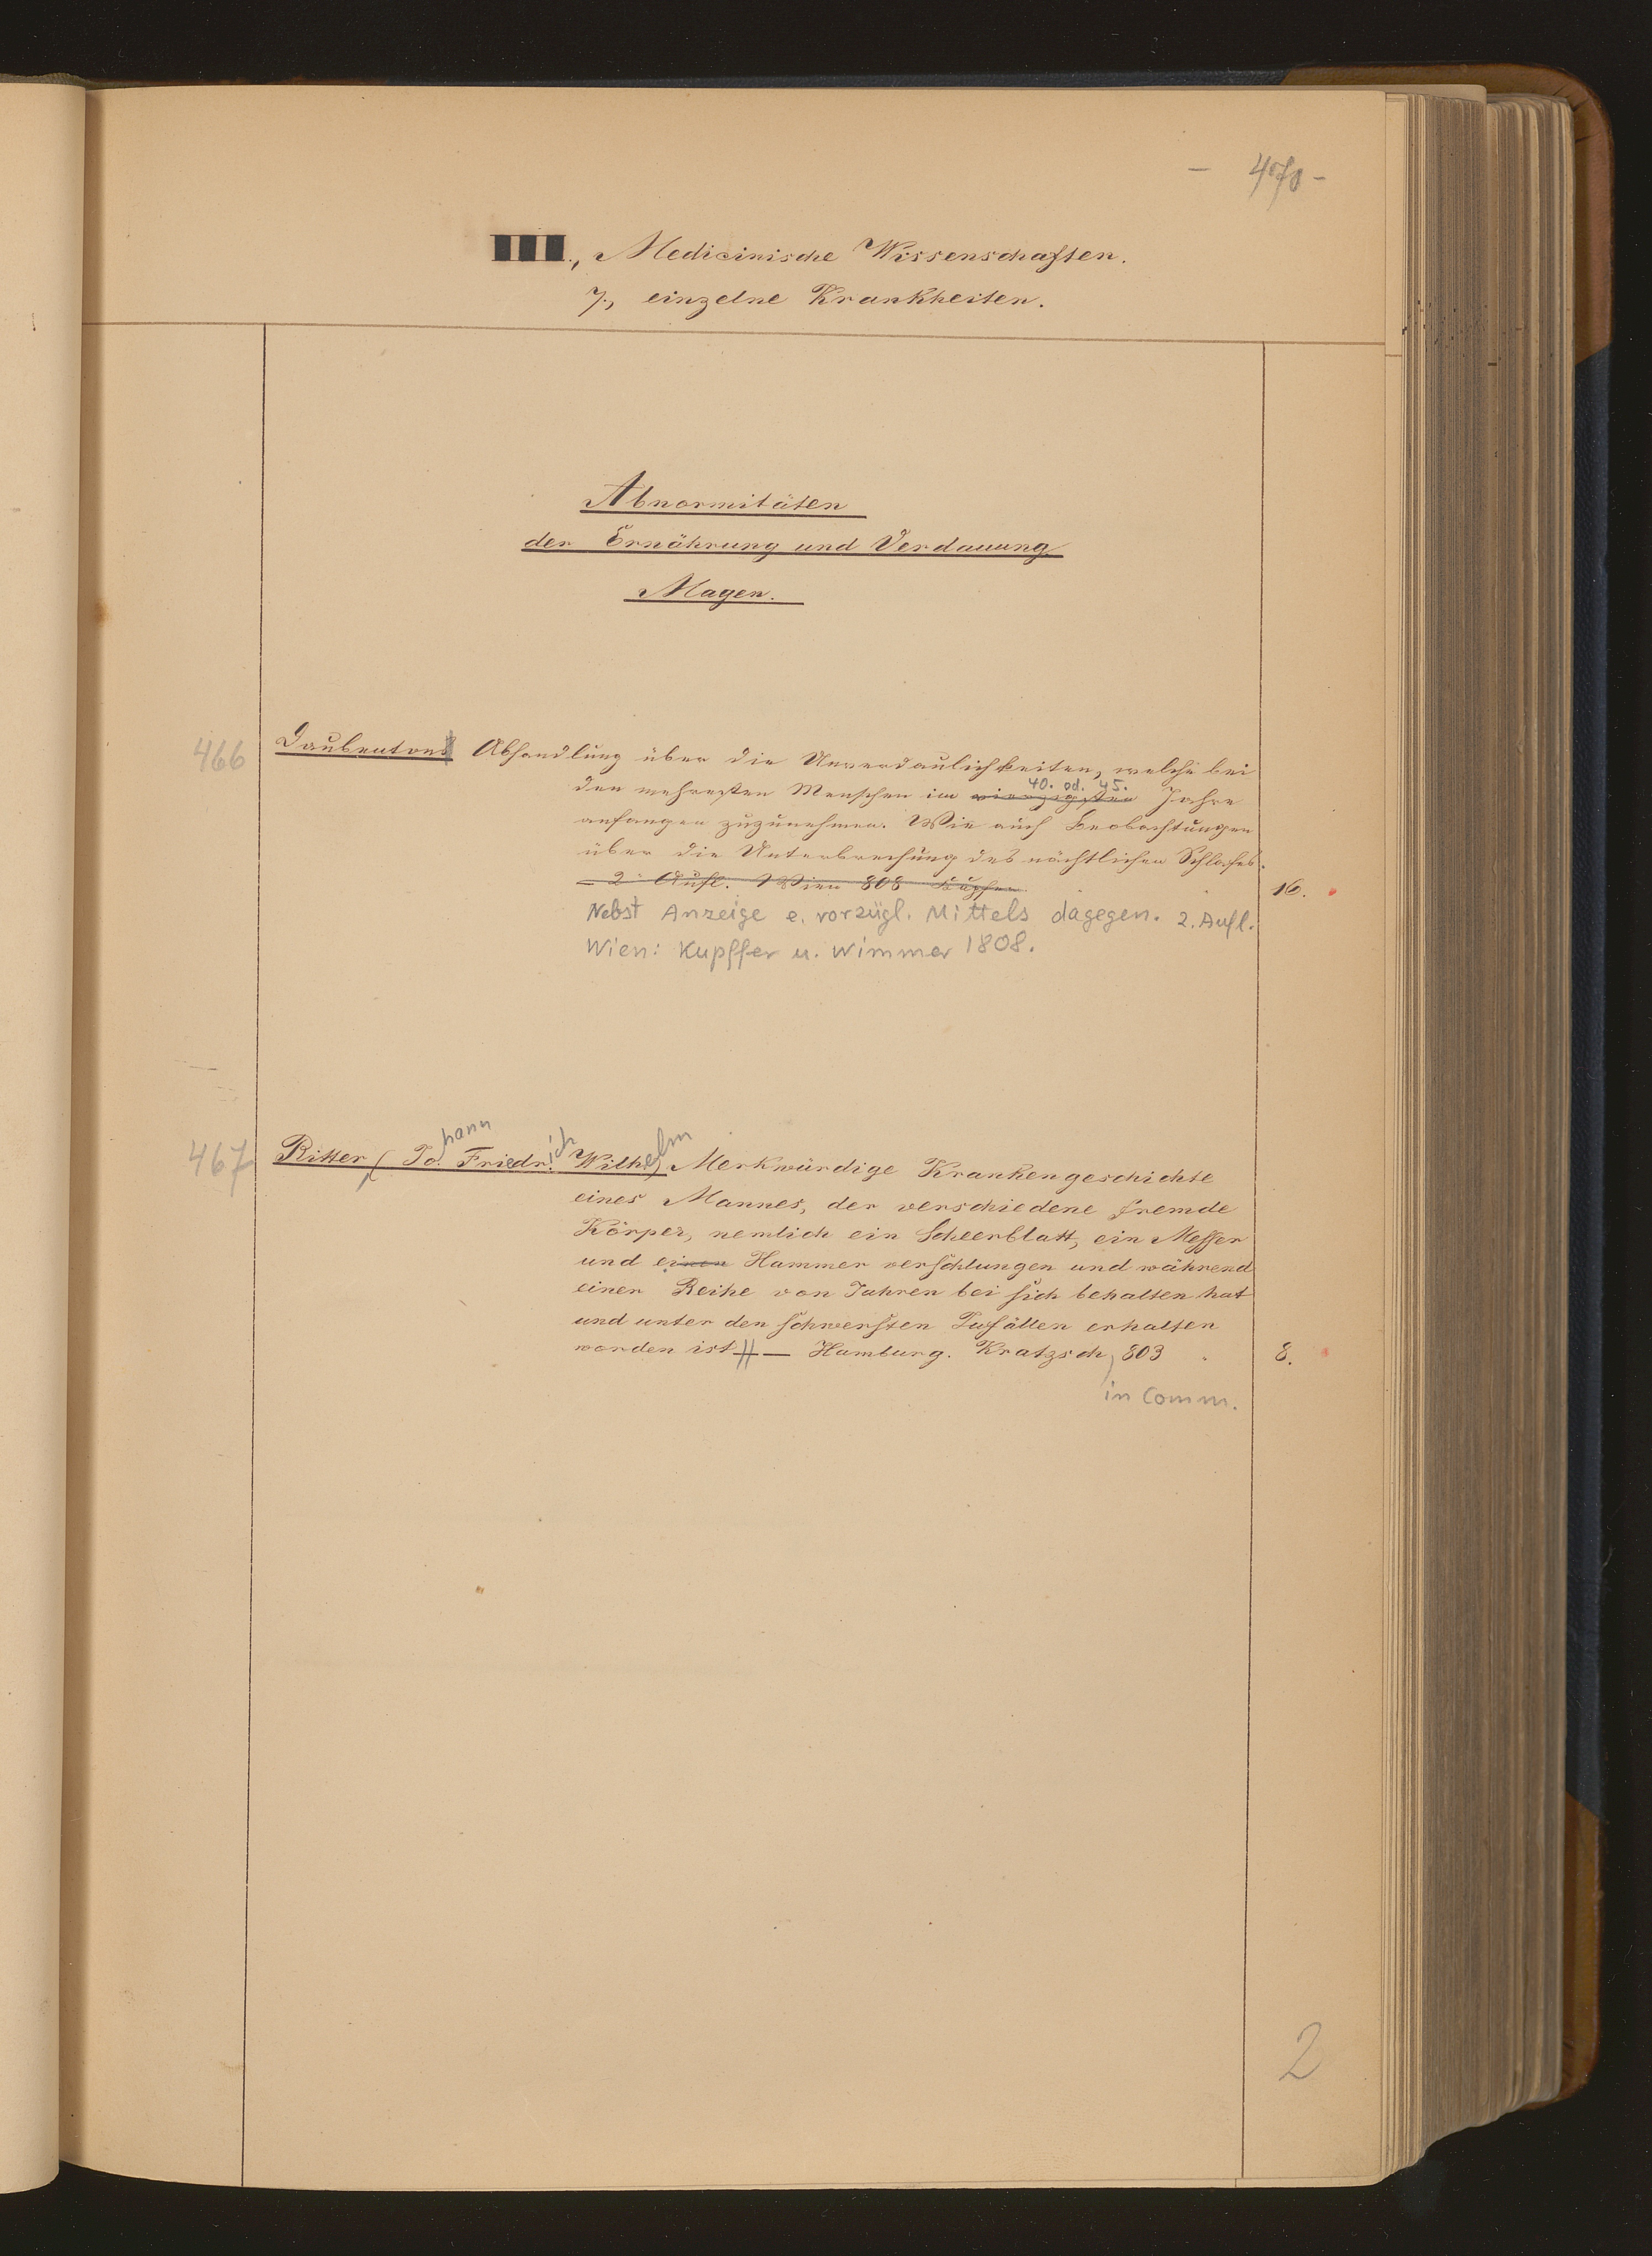 - 470 -
III., Medicinische Wissenschaften.
7., einzelne Krankheiten.
Abnormitäten
der Ernährung und Verdauung
Magen.
466 Daubentons Abhandlung über die Unverdaulichkeiten, welche bei
40. od. 45.
den mehresten Menschen im vierzigsten Jahre
anfangen zuzunehmen. Wie auch Beobachtungen
über die Unterbrechung des nächtlichen Schlafes.
– 2 Aufl. Wien 808 Kupfer 16.
Nebst Anzeige e. vorzügl. Mittels dagegen. 2. Aufl.
Wien: Kupffer u. Wimmer 1808.
hann ich elm
467 Ritter, Jo. Friedr. Wilh. Merkwürdige Krankengeschichte
eines Mannes, der verschiedene fremde
Körper, nemlich ein Scheerblatt, ein Messer
und einen Hammer verschlungen und während
einer Reihe von Jahren bei sich behalten hat
und unter den schwersten Zufällen erhalten
worden ist — Hamburg. Kratzsch, 803 8.
in Comm.
2